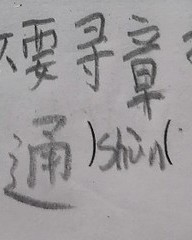 不要寻章
通)shùn(